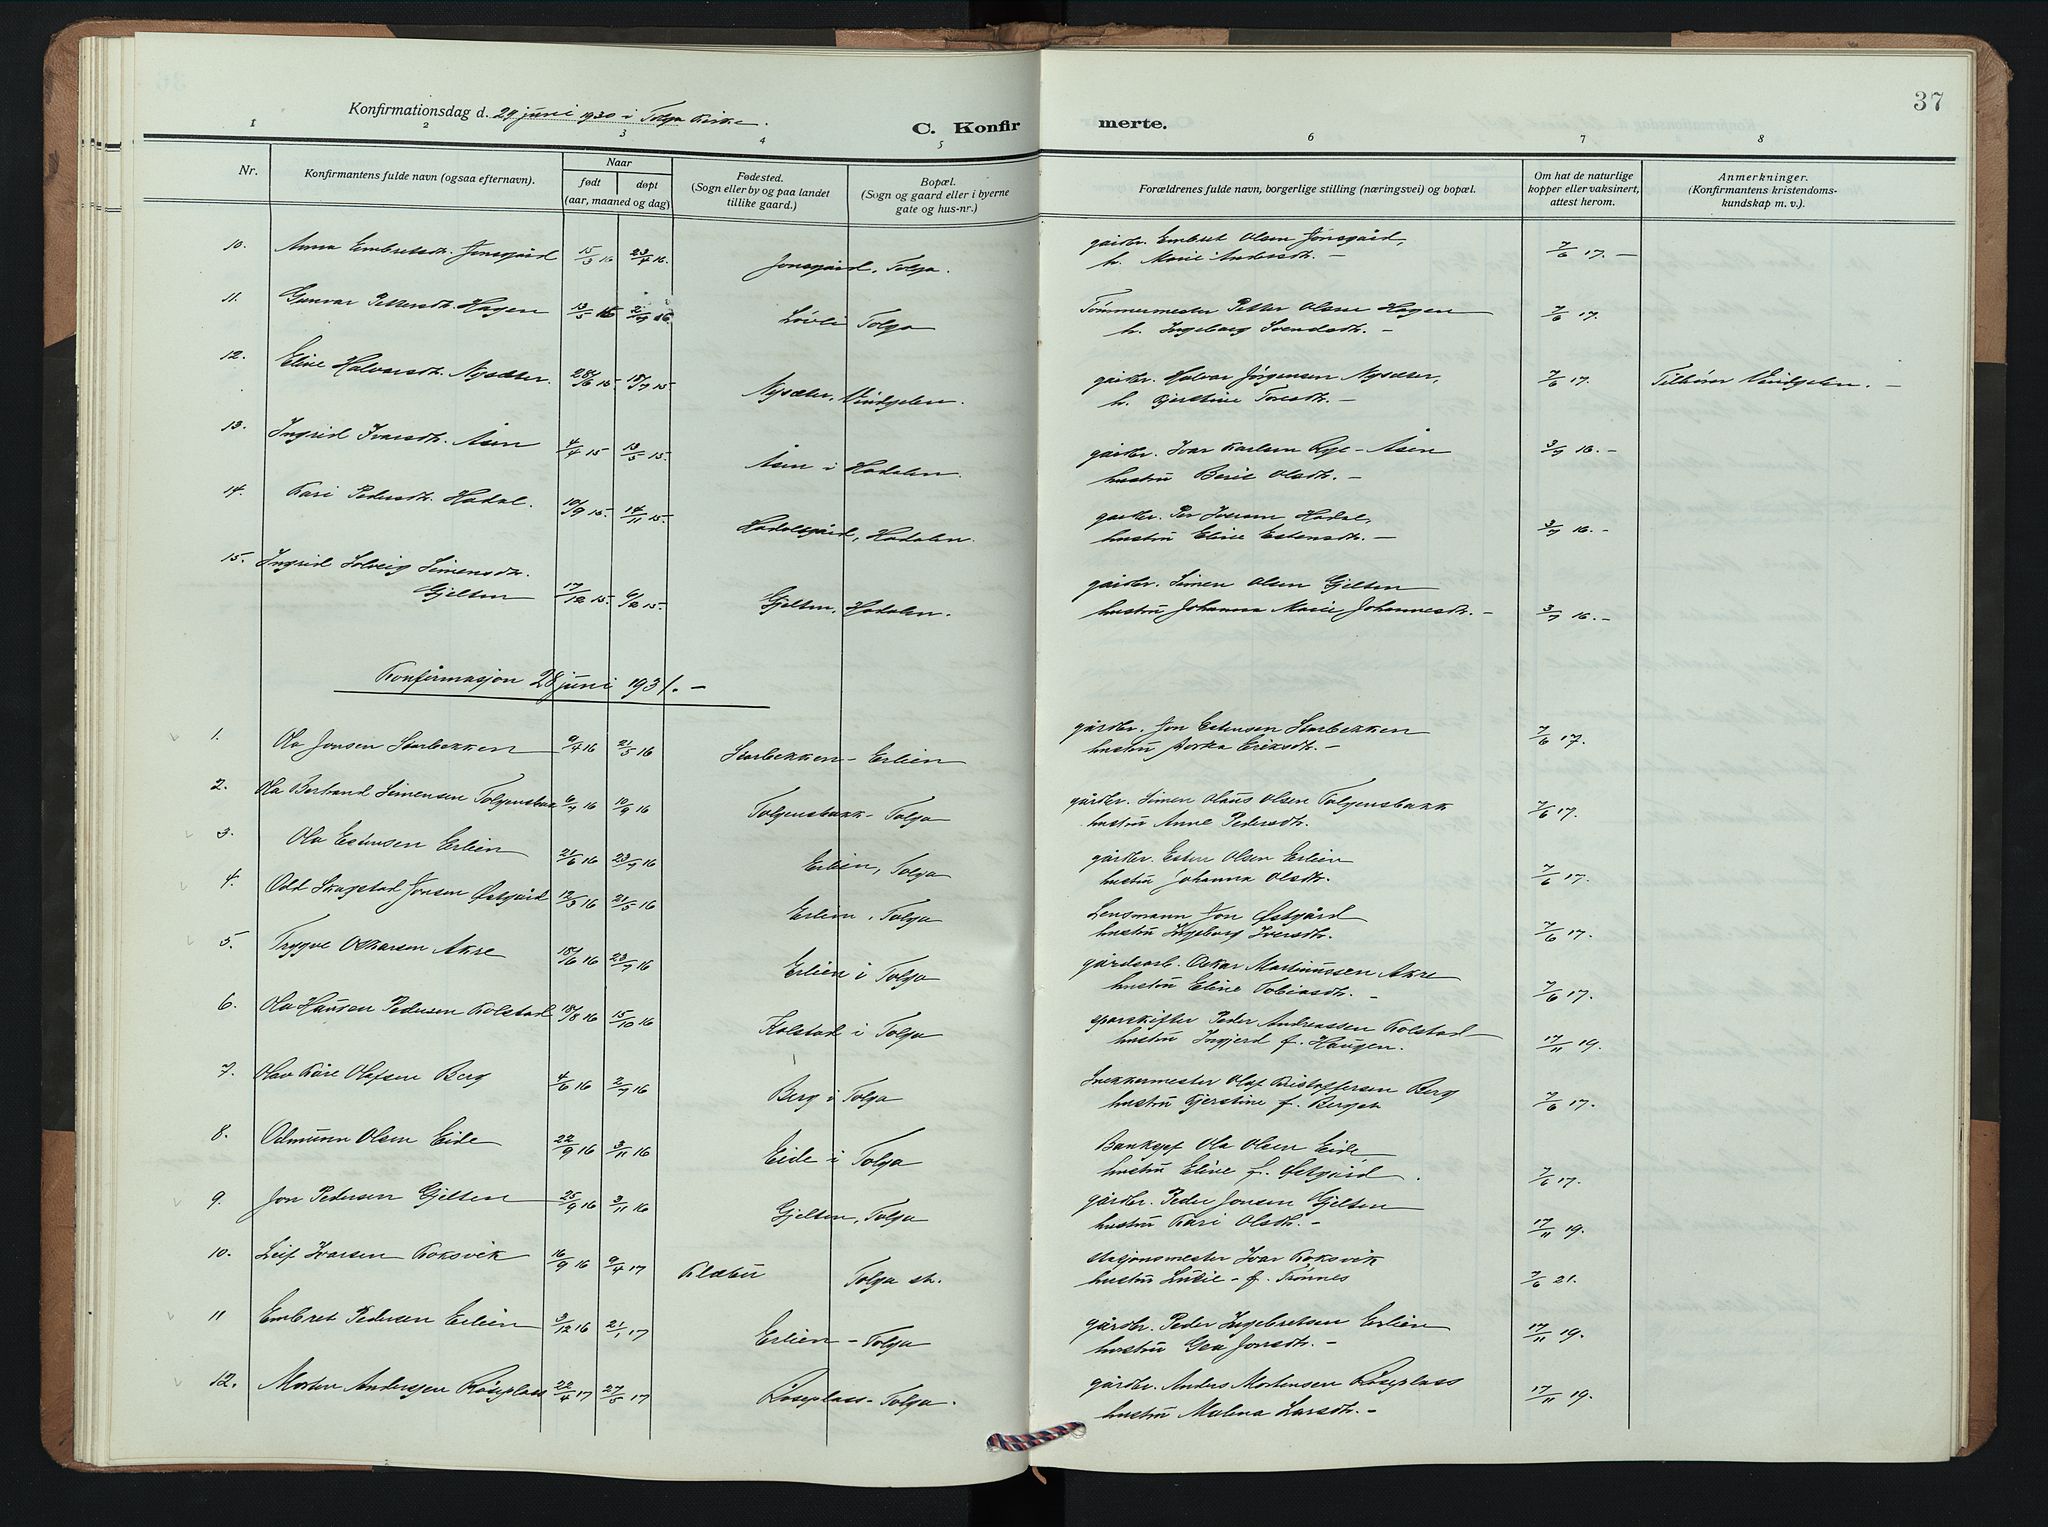 37
Konfirmationsdag d. 29 juni 1930 i Tolga Kirke.
C. Konfirmerte.
1 2 3 4 5 6 7 8
Nr. Konfirmantens fulde navn (ogsaa efternavn). Naar født døpt (aar, maaned og dag) Fødested. (Sogn eller by og paa landet tillike gaard.) Bopæl. (Sogn og gaard eller i byerne gate og hus-nr.) Forældrenes fulde navn, borgerlige stilling (næringsvei) og bopæl. Om hat de naturlige kopper eller vaksinert, attest herom. Anmerkninger. (Konfirmantens kristendomskundskap m. v.).
10. Anna Embretsdt. Jonsgård 15/3 16 23/4 16. Jonsgård, Tolga. gårdbr. Embret Olsen Jonsgård, 7/6 17. —
h. Marie Andersdt. —
11. Gunvor Pettersdt. Hagen 13/5 16 2/7 16. Løvli Tolga Tømmermester Petter Olsen Hagen 7/6 17.
h. Ingeborg Svendsdt. —
12. Eline Halvorsdt. Nysæter. 28/6 15 18/7 15 Nysæter, Vindgelen. gårdbr. Halvor Jørgensen Nysæter, 7/6 17. Tilhører Vindgelen. —
h. Kjerstine Toresdt. —
13. Ingrid Ivarsdt. Åsen 4/4 15 13/5 15. Åsen i Hodalen. gårdbr. Ivar Karlsen Rye-Åsen 3/7 16. —
hustru Berit Olsdt. —
14. Kari Pedersdt. Hodal. 10/9 15. 14/11 15. Hodalsgård, Hodalen. gårdbr. Per Iversen Hodal, 3/7 16. —
hustru Eline Estensdt. —
15. Ingrid Solveig Simensdt.
Gjelten 17/12 15. 6/2 15. Gjelten, Hodalen. gårdbr. Simen Olsen Gjelten
hustru Johanna Marie Johannesdt. — 3/7 16. —
Konfirmasjon 28 juni 1931. —
1. Ola Jonsen Storbekken 9/4 16 21/5 16 Storbekken - Erlien gårdbr. Jon Estensen Storbekken 7/6 17.
hustru Eriksdt. —
2. Ola Bertrand Simensen Tolgensbakk 6/7 16 10/9 16 Tolgensbakk - Tolga gårdbr. Simen Olaus Olsen Tolgensbakk 7/6 17.
hustru Anne Pedersdt.
3. Ola Estensen Erlien 21/6 16 23/7 16 Erlien, Tolga gårdbr. Esten Olsen Erlien
hustru Johanna Olsdt. 7/6 17.
4. Odd Skogstad Jonsen Østgård 12/3 16 21/5 16 Erlien, Tolga Lensmann Jon Østgård
hustru Ingeborg Iversdt. 7/6 17.
5. Trygve Oskarsen Åkre 18/6 16 23/7 16 Erlien i Tolga gårdsarb. Oskar Martinussen Åkre
hustru Eline Tobiasdt. — 7/6 17.
6. Ola Hansen Pedersen Kolstad 18/8 16 15/10 16 Kolstad i Tolga sporskifter Peder Andreassen Kolstad
hustru Ingjerd f. Haugen. 17/11 19.
7. Olav Kåre Olafsen Berg 4/6 16 2/7 16 Berg i Tolga Snekkermester Olaf Kristoffersen Berg
hustru Kjerstine f. Berget 7/6 17.
8. Odmunn Olsen Eide 22/9 16 3/11 16 Eide i Tolga Bankkff Ola Olsen Eide
hustru Eline f. Østgård. 7/6 17.
9. Jon Pedersen Gjelten 25/9 16 3/11 16 Gjelten, Tolga gårdbr. Peder Jonsen Gjelten
hustru Kari Olsdt. — 17/11 19.
10. Leif Ivarsen Roksvik 16/9 16 9/4 17 Klæbu Tolga st. Stasjonsmester Ivar Roksvik
hustru Lusie — f. Trønnes 7/6 21.
11 Embret Pedersen Erlien 3/12 16 21/1 17 Erlien - Tolga gårdbr. Peder Ingebretsen Erlien 17/11 19.
hustru Gea Jonsdt. —
12. Morten Andersen Røseplass 22/4 17 27/5 17 Røseplass - Tolga. gårdbr. Anders Mortensen Røseplass 17/11 19.
hustru Malena Larsdt. —